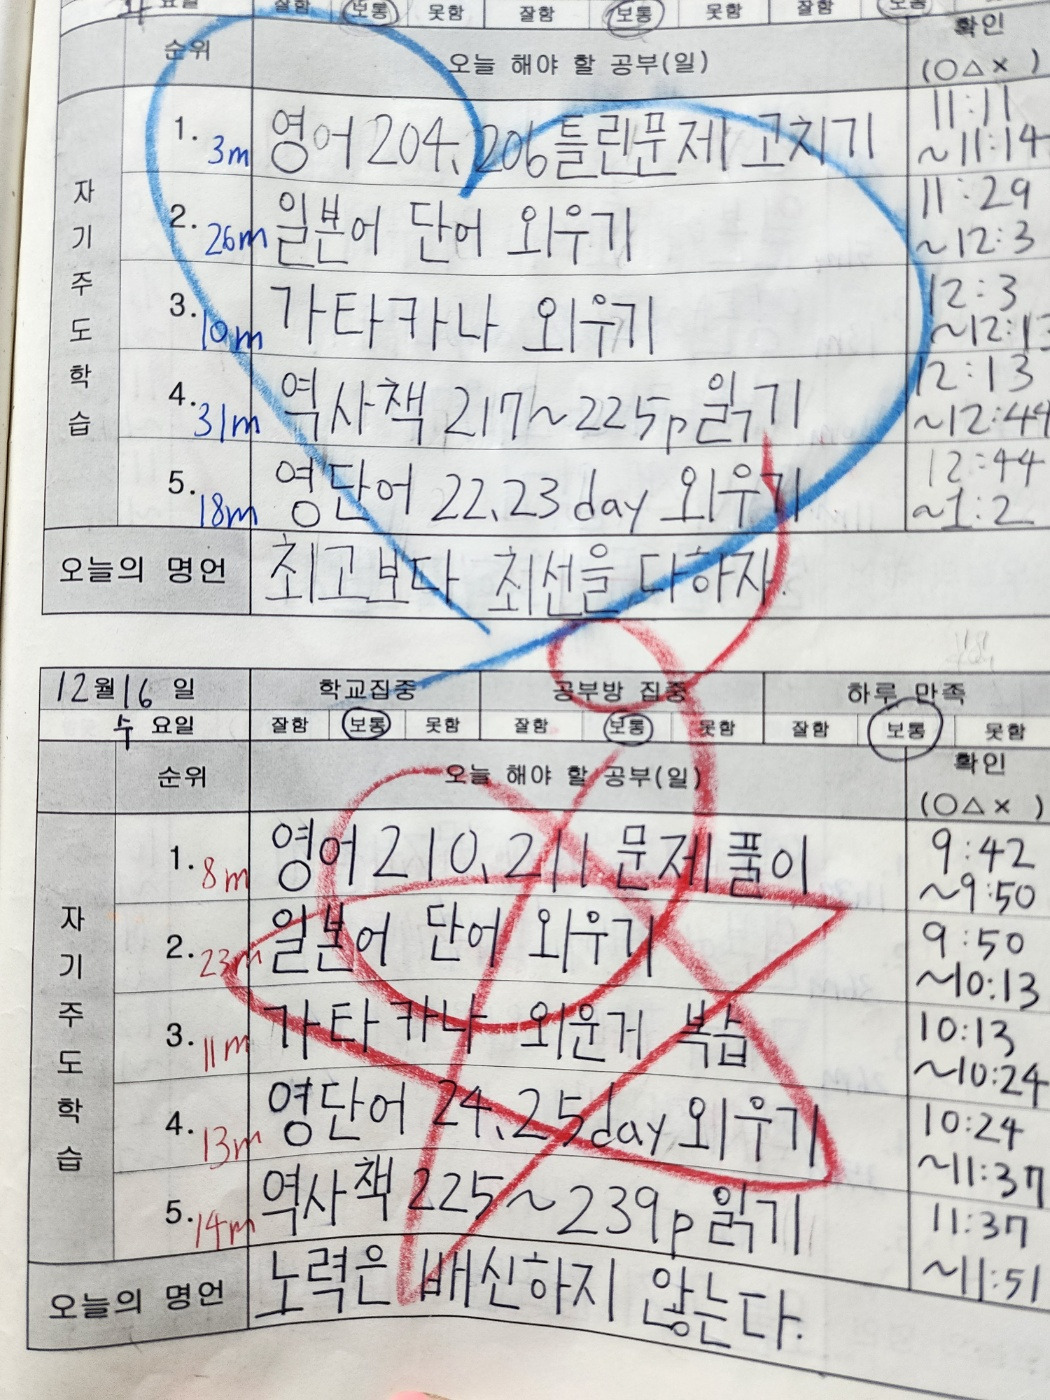 요일 잘함 보통 못함 잘함 보통 못함 잘함 보통
순위 오늘 해야 할 공부(일) 확인 (○△× )
자기주도학습
1. 3m 영어 204, 206 틀린문제 고치기 11:11 ~11:14
2. 26m 일본어 단어 외우기 11:29 ~12:3
3. 10m 가타카나 외우기 12:3 ~12:13
4. 31m 역사책 217~225p 읽기 12:13 ~12:44
5. 18m 영단어 22, 23 day 외우기 12:44 ~1:2
오늘의 명언 최고보다 최선을 다하자.
12월 16 일 학교집중 공부방 집중 하루 만족
수 요일 잘함 보통 못함 잘함 보통 못함 잘함 보통 못함
순위 오늘 해야 할 공부(일) 확인 (○△× )
자기주도학습
1. 8m 영어 210, 211 문제 풀이 9:42 ~9:50
2. 23m 일본어 단어 외우기 9:50 ~10:13
3. 11m 가타카나 외운거 복습 10:13 ~10:24
4. 13m 영단어 24, 25day 외우기 10:24 ~11:37
5. 14m 역사책 225~239p 읽기 11:37 ~11:51
오늘의 명언 노력은 배신하지 않는다.